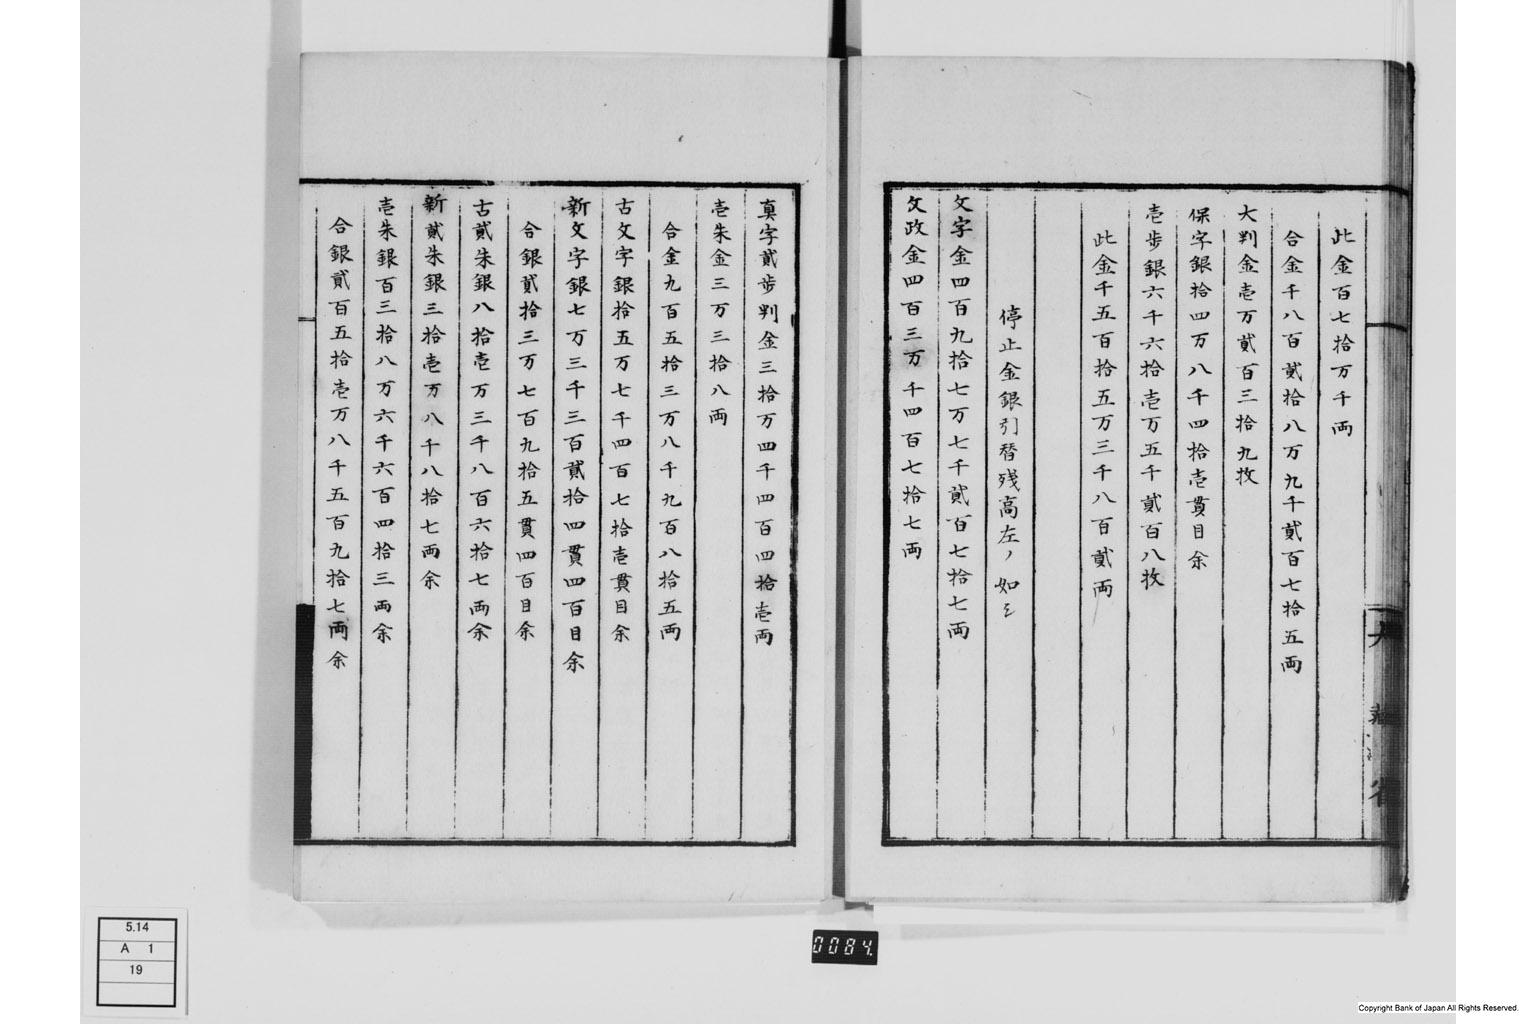 此金百七拾万千両
合金千八百貳拾八万九千貳百七拾五両
大判金壱万貳百三拾九枚
保字銀拾四万八千四拾壱貫目余
壱歩銀六千六拾壱万五千貳百八枚
此金千五百拾五万三千八百貳両
停止金銀引替残高左ノ如シ
文字金四百九拾七万七千貳百七拾七両
文政金四百三万千四百七拾七両
真字貳歩判金三拾万四千四百四拾壱両
壱朱金三万三拾八両
合金九百五拾三万八千九百八拾五両
古文字銀拾五万七千四百七拾壱貫目余
新文字銀七万三千三百貳拾四貫四百目余
合銀貳拾三万七百九拾五貫四百目余
古貳朱銀八拾壱万三千八百六拾七両余
新貳朱銀三拾壱万八千八拾七両余
壱朱銀百三拾八万六千六百四拾三両余
合銀貳百五拾壱万八千五百九拾七両余
5.14
A 1
19
0084
Copyright Bank of Japan All Rights Reserved.